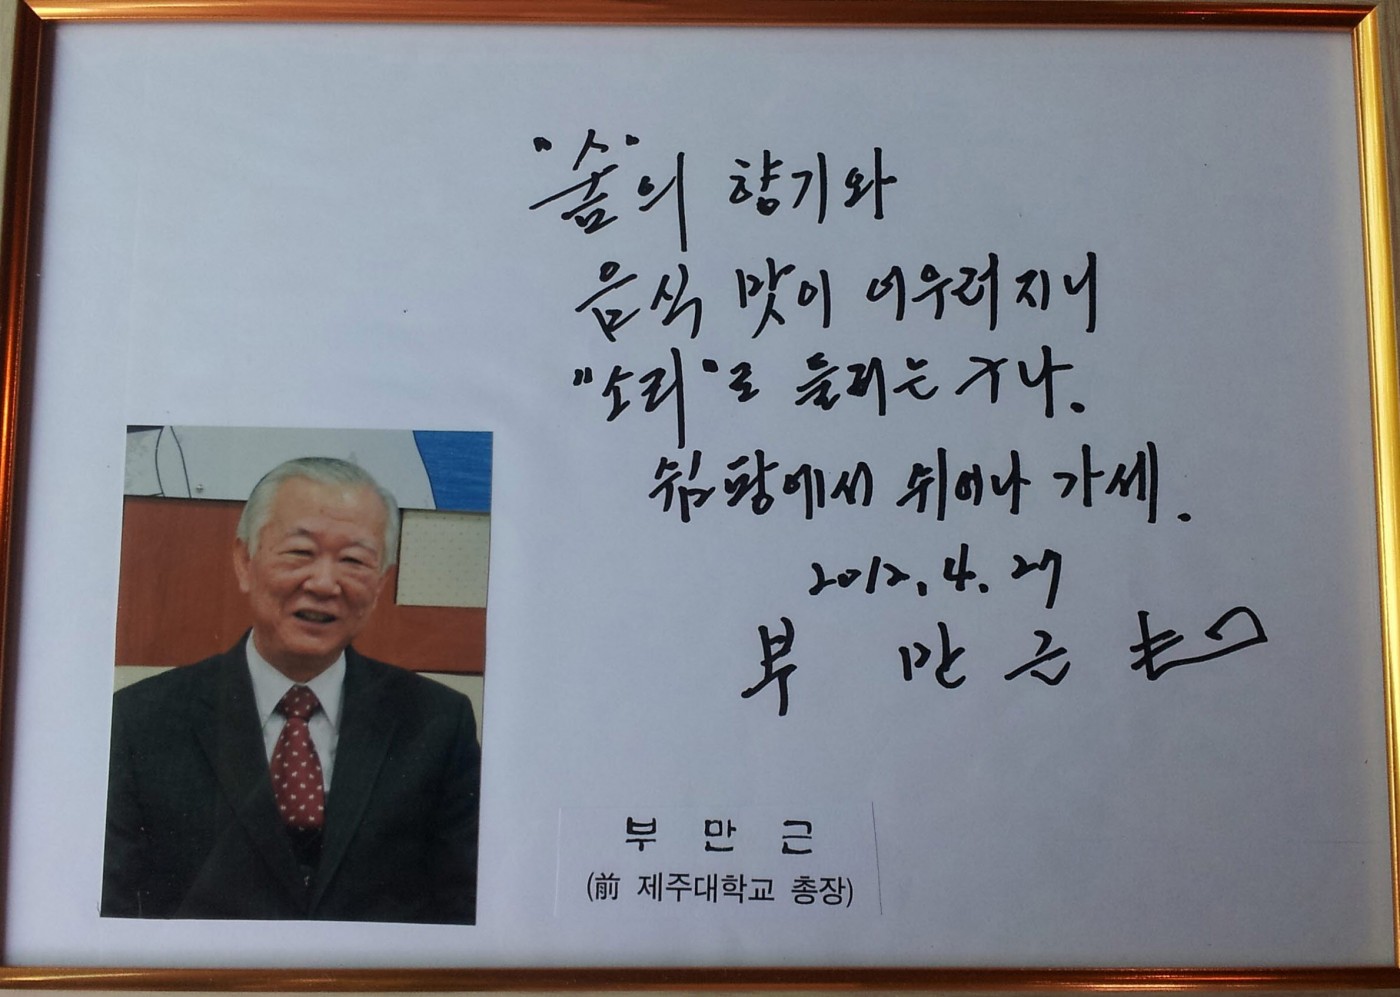 "숨"의 향기와
음식 맛이 어우러지니
"소리"로 들리는구나.
쉼팡에서 쉬어나 가세.
2012. 4. 27
부 만 근
부 만 근
(前 제주대학교 총장)